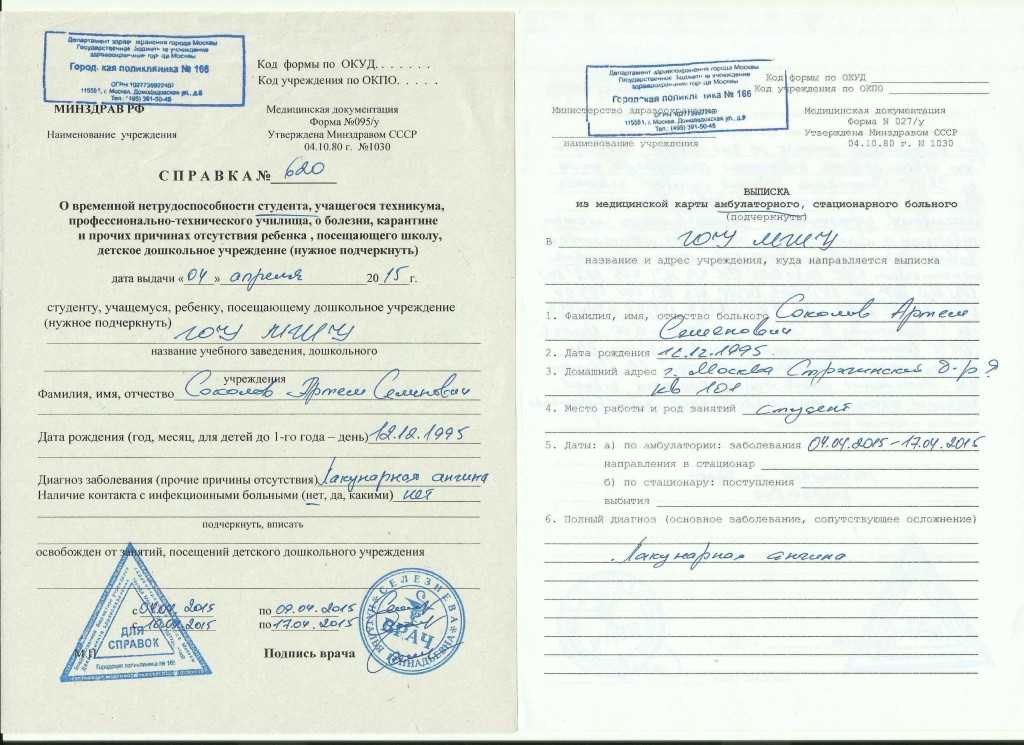 Департамент здравоохранения города Москвы
Государственное бюджетное учреждение
здравоохранения города Москвы
Городская поликлиника № 166
ОГРН 1027739922407
115551, г. Москва, Домодедовская ул., д.9
Тел.: (495) 391-50-45
Код формы по ОКУД. . . . . . .
Код учреждения по ОКПО. . . . .
МИНЗДРАВ РФ
Наименование учреждения
Медицинская документация
Форма №095/у
Утверждена Минздравом СССР
04.10.80 г. №1030
СПРАВКА№ 620
О временной нетрудоспособности студента, учащегося техникума,
профессионально-технического училища, о болезни, карантине
и прочих причинах отсутствия ребенка , посещающего школу,
детское дошкольное учреждение (нужное подчеркнуть)
дата выдачи « 04 » апреля 2015 г.
студенту, учащемуся, ребенку, посещающему дошкольное учреждение
(нужное подчеркнуть) ГОУ МГИУ
название учебного заведения, дошкольного
учреждения
Фамилия, имя, отчество Соколов Артем Семенович
Дата рождения (год, месяц, для детей до 1-го года – день) 12.12.1995
Диагноз заболевания (прочие причины отсутствия) Лакунарная ангина
Наличие контакта с инфекционными больными (нет, да, какими) нет
подчеркнуть, вписать
освобожден от занятий, посещений детского дошкольного учреждения
с 04.04.2015 по 09.04.2015
с 10.04.2015 по 17.04.2015
М.П. Подпись врача
ДЛЯ
СПРАВОК
Городская поликлиника № 166
СЕЛЕЗНЕВА
НАТАЛЬЯ ГЕННАДЬЕВНА
ВРАЧ
Департамент здравоохранения города Москвы
Государственное бюджетное учреждение
здравоохранения города Москвы
Городская поликлиника № 166
ОГРН 1027739922407
115551, г. Москва, Домодедовская ул., д.9
Тел.: (495) 391-50-45
Код формы по ОКУД
Код учреждения по ОКПО
Министерство здравоохранения
наименование учреждения
Медицинская документация
Форма N 027/у
Утверждена Минздравом СССР
04.10.80 г. N 1030
ВЫПИСКА
из медицинской карты амбулаторного, стационарного больного
(подчеркнуть)
В ГОУ МГИУ
название и адрес учреждения, куда направляется выписка
1. Фамилия, имя, отчество больного Соколов Артем
Семенович
2. Дата рождения 12.12.1995.
3. Домашний адрес г. Москва Строгинский б-р 7
кв 101
4. Место работы и род занятий студент
5. Даты: а) по амбулатории: заболевания 04.04.2015-17.04.2015
направления в стационар
б) по стационару: поступления
выбытия
6. Полный диагноз (основное заболевание, сопутствующее осложнение)
Лакунарная ангина